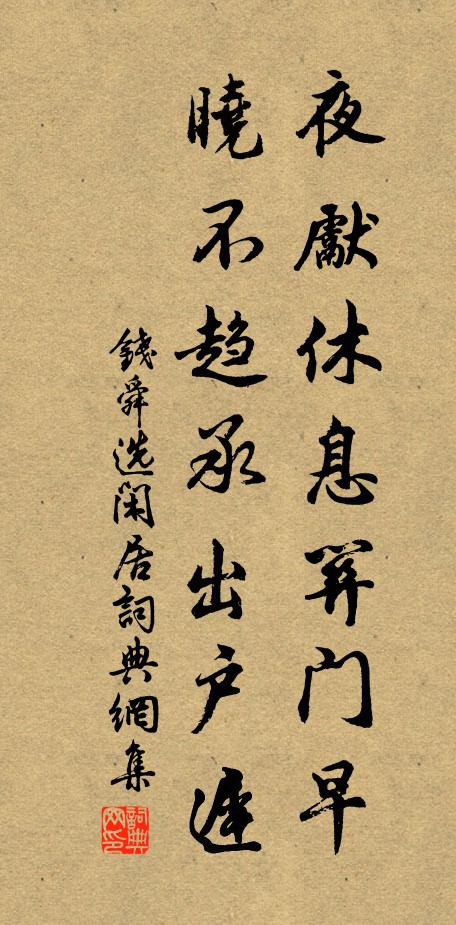 夜獻休息關门早
曉不趋承出户遲
錢舜选闲居詞典網集
詞典
网印